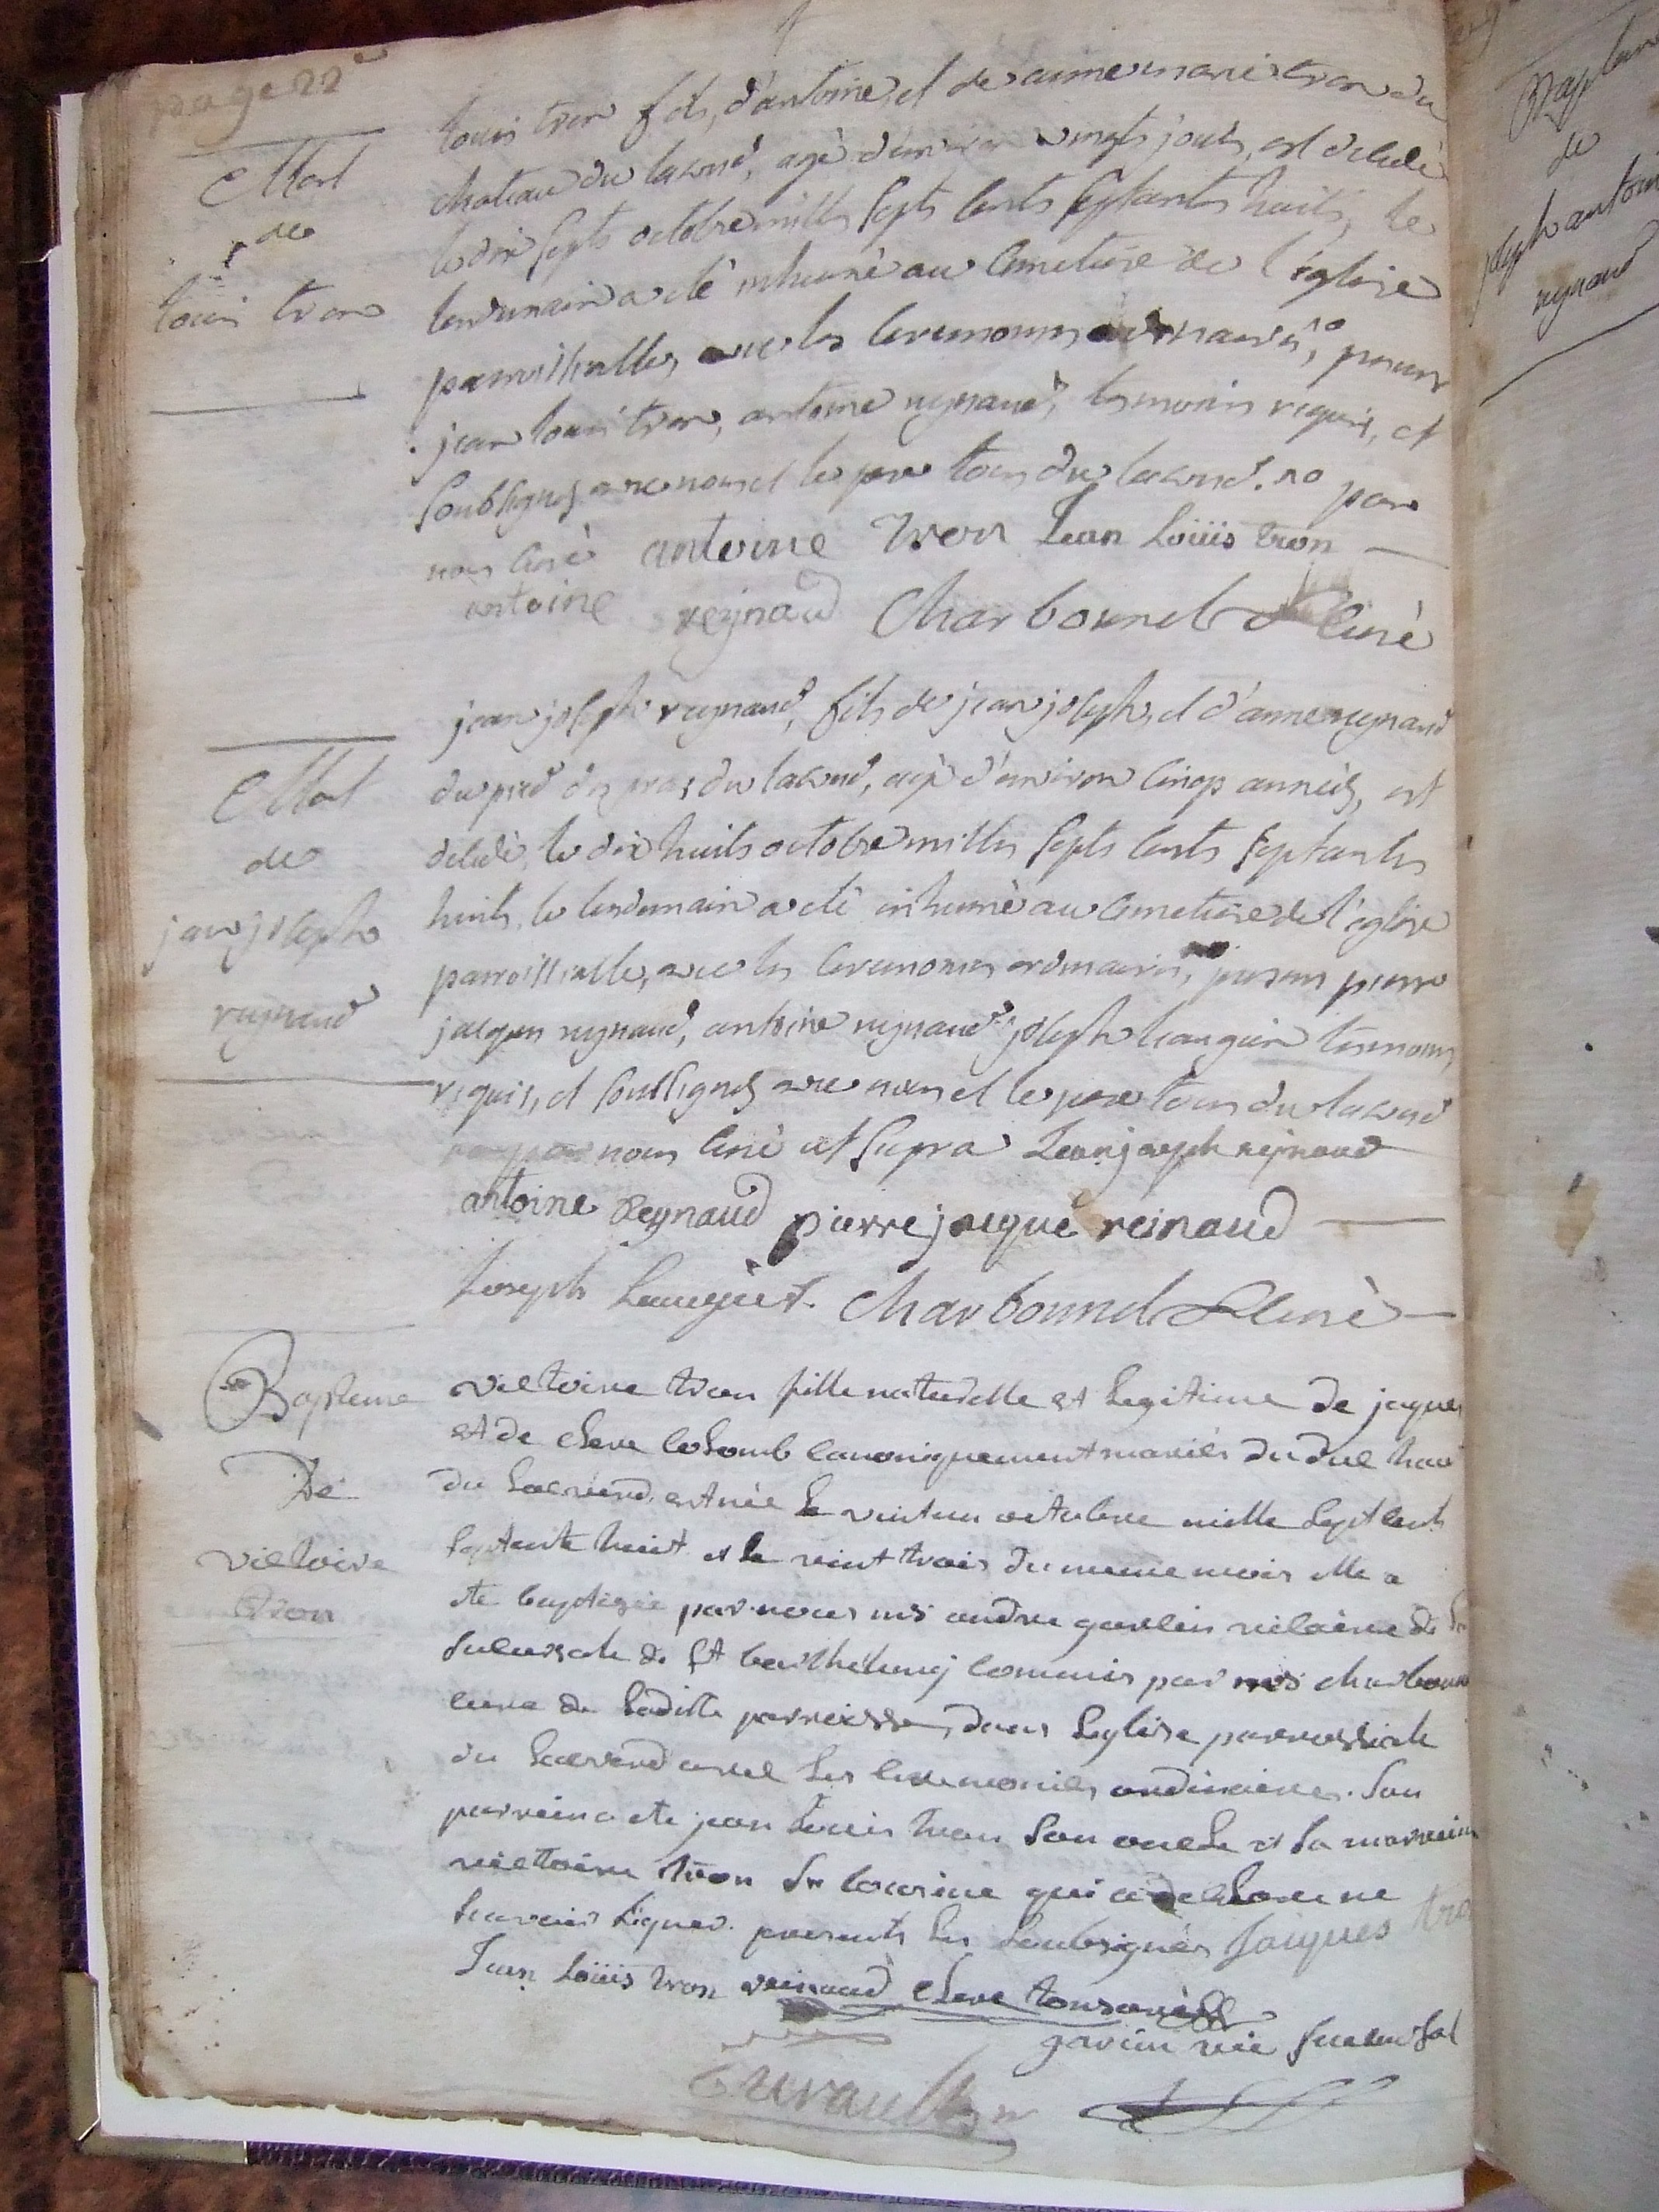 page 22e
Mort
de
louis tron
louis tron fils, d'antoine, et de anne marie tron du
chateau du laverd, agé d'environ vingts jours, est decedé
le dix septs octobre mille septs cents septante huits, le
lendemain a eté inhumé au cimetiere de l'eglise
parroissialle, avec les ceremonies ordinaires, presens
jean louis tron, antoine reynaud, temoins requis, et
soubsignes avec nous et le pere tous du laverd. par
nous curé antoine tron Jean Loüis tron
antoine reynaud Charbonnel Curé
Mort
de
jean joseph
reynaud
jean joseph reynaud, fils de jean joseph, et d'anne reynaud
du pied des pras du laverd, agé d'environ cinqs années, est
decedé, le dix huits octobre mille septs cents septantes
huits, le lendemain a eté inhumé au cimetiere de l'eglise
parroissialle, avec les ceremonies ordinaires, presens pierre
jacques reynaud, antoine reynaud, joseph teangier temoins
requis, et soubsignes avec nous et le pere tous du laverd
par nous curé ut supra Jean joseph rejnaud
antoine Reynaud pierre jacque reinaud
Joseph Charbonnel Curé
Bapteme
De
victoire
tron
victoire tron fille naturelle et legitime de jaques
et de colomb canoniquement mariés du
du Laverd, est née le vintun octobre mille sept cents
septante huit et le vint trois du meme mois elle a
ete baptisée par nous mr andre vicaire de la
sucursale de st barthelemy commis par mr charbonnel
curé de Ladite parroisse, dans Leglise parroissiale
du Laverd avel Les ceremonies ordinaires. Son
parrein a ete jean Louis tron son oncle et sa marreine
victoire tron sa cousine qui a declaré ne
scavoir signer. presents les soubsignés Jaiques tron
Jean Loüis tron reinaud clerc tonsuré
vic sucursal
Bapteme
de
joseph antoine
reynaud